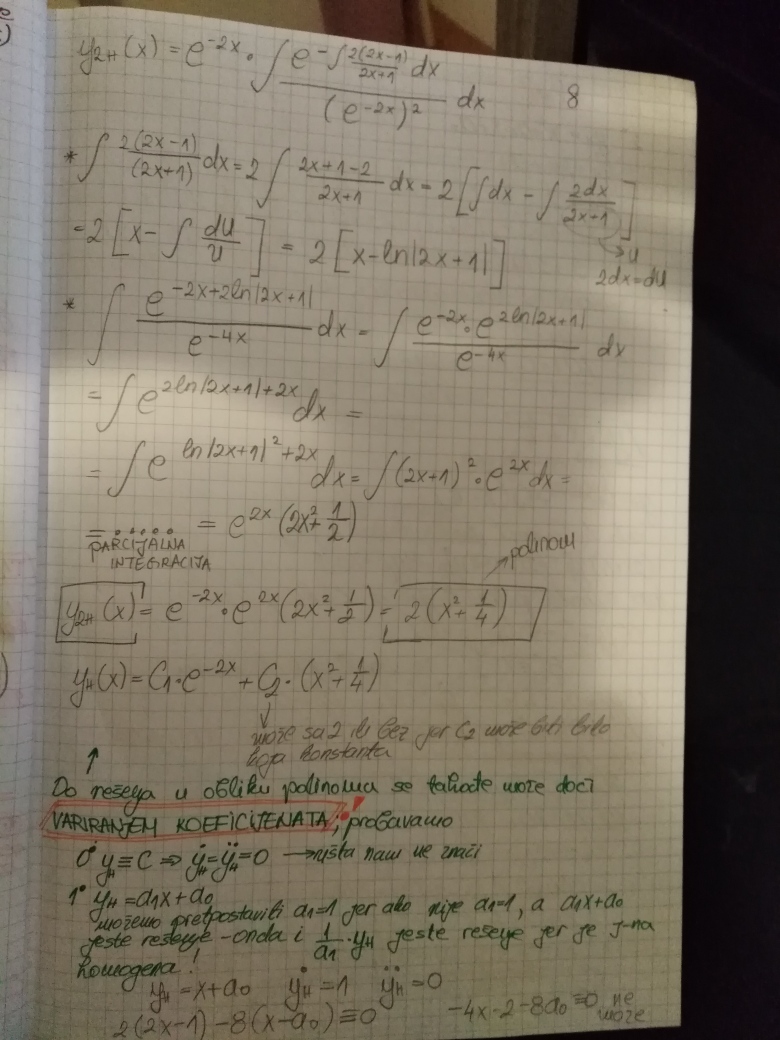 y₂ₕ(x) = e^{-2x} · ∫ e^{-∫ 2(2x-1)/(2x+1) dx} / (e^{-2x})² dx 8
* ∫ 2(2x-1)/(2x+1) dx = 2 ∫ (2x+1-2)/(2x+1) dx = 2 [∫dx - ∫ 2dx/(2x+1)]
→ u
= 2 [x - ∫ du/u] = 2 [x - ln|2x+1|] 2dx = du
* ∫ e^{-2x+2ln|2x+1|} / e^{-4x} dx = ∫ e^{-2x} · e^{2ln|2x+1|} / e^{-4x} dx
= ∫ e^{2ln|2x+1|+2x} dx =
= ∫ e^{ln|2x+1|²+2x} dx = ∫ (2x+1)² · e^{2x} dx =
= ..... = e^{2x} (2x² + 1/2)
PARCIJALNA
INTEGRACIJA
→ polinom
y₂ₕ(x) = e^{-2x} · e^{2x} (2x² + 1/2) = 2 (x² + 1/4)
yₕ(x) = C₁ · e^{-2x} + C₂ · (x² + 1/4)
↓
može sa 2 ili bez jer C₂ može biti bilo
koja konstanta
↑
Do rešenja u obliku polinoma se takođe može doći
VARIRANJEM KOEFICIJENATA; probavamo
0° yₕ ≡ C ⇒ ẏₕ = ÿₕ = 0 → ništa nam ne znači
1° yₕ = a₁x + a₀
možemo pretpostaviti a₁=1 jer ako nije a₁=1, a a₁x+a₀
jeste rešenje - onda i 1/a₁ · yₕ jeste rešenje jer je j-na
homogena!
yₕ = x + a₀ ẏₕ = 1 ÿₕ = 0
2(2x-1) - 8(x-a₀) ≡ 0 -4x-2-8a₀ ≡ 0 ne
može